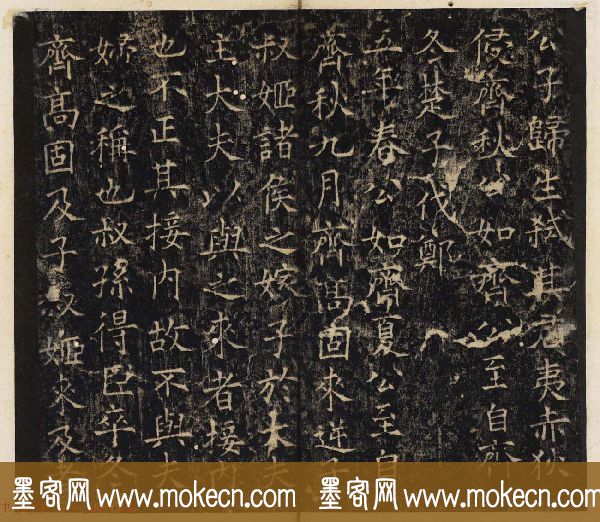 公子歸生弒其君夷赤狄
侵齊秋公如齊公至自齊
冬楚子伐鄭
五年春公如齊夏公至自
齊秋九月齊高固來逆子
叔姬諸侯之嫁子於大夫
主大夫以與之來者接內
也不正其接內故不與夫
婦之稱也叔孫得臣卒冬
齊高固及子叔姬來及者
墨客网 www.mokecn.com 墨客网 www.mokecn.com